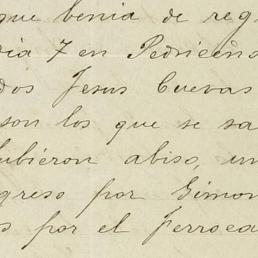 que benia de reg
dia 7 en Pedriceña
dos Jesus Cuevas
son los que se sa
tubieron abiso, un
greso por Simon
s por el Ferroca